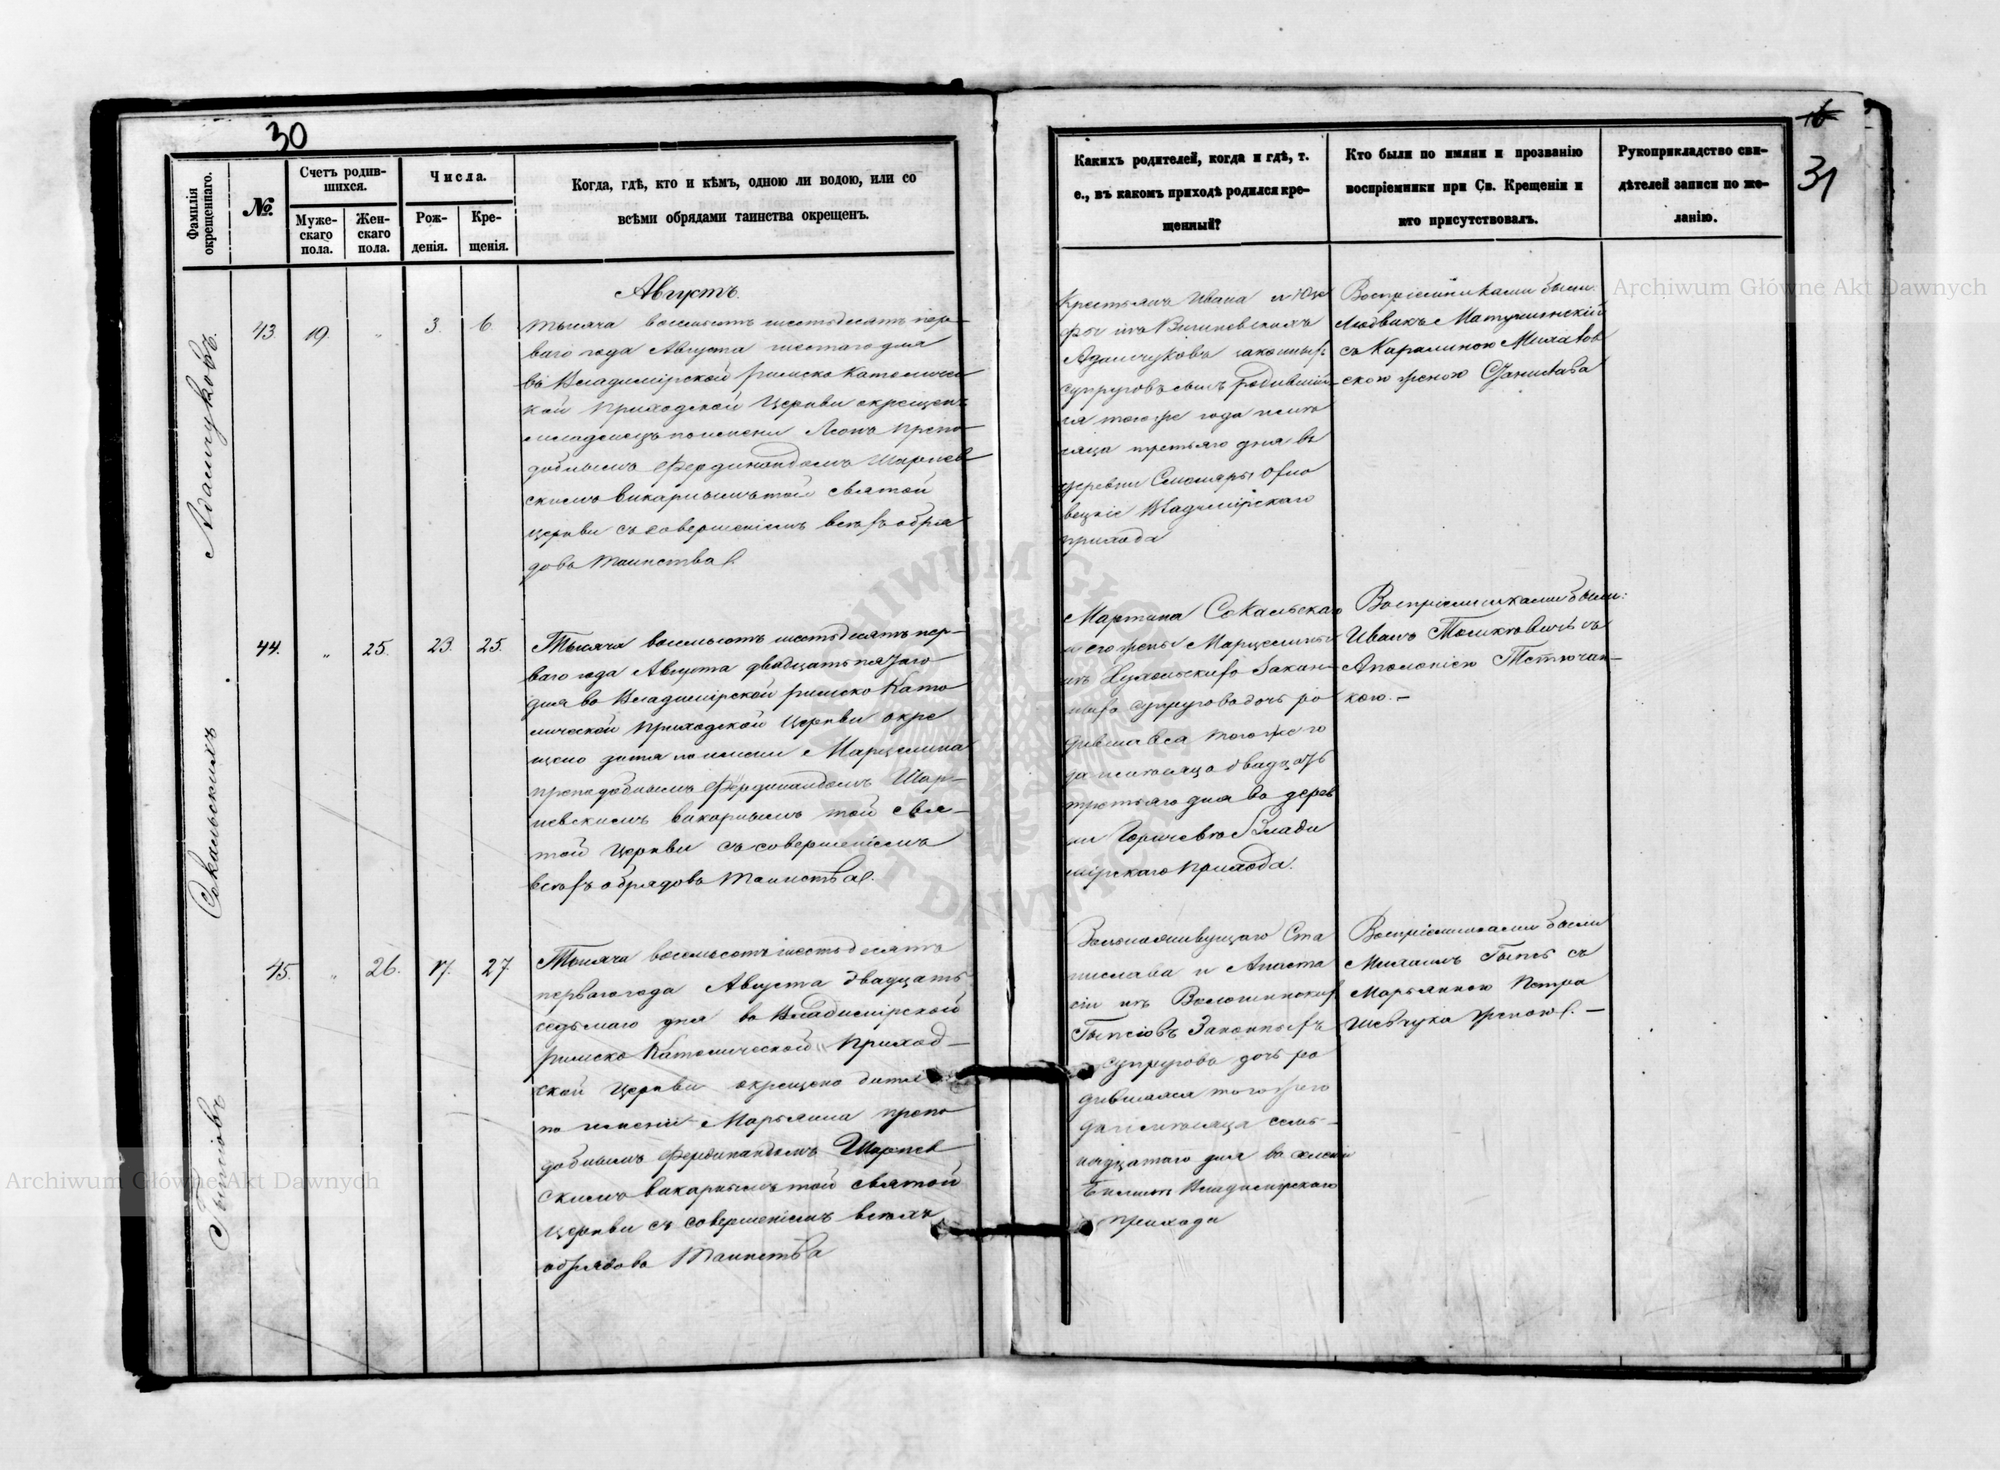 30
Фамилія окрещеннаго.
№.
Счетъ родив-
шихся.
Муже-
скаго
пола.
Жен-
скаго
пола.
Числа.
Рож-
денія.
Кре-
щенія.
Когда, гдѣ, кто и кѣмъ, одною ли водою, или со
всѣми обрядами таинства окрещенъ.
Августъ.
Адамчуковъ.
43
19.
"
3.
6.
тысяча восемьсотъ шестьдесятъ пер-
ваго года Августа шестаго дня
въ Владимірской римско Католичес
кой Приходской Церкви окрещенъ
младенецъ по имени Леонъ препо
добнымъ Фердинандомъ Шарнев
скимъ викарнымъ той святой
церкви съ совершеніемъ всѣхъ обря
довъ таинства.
Сокальскихъ
44.
"
25.
23.
25.
Тысяча восемьсотъ шестьдесятъ пер-
ваго года Августа двадцать пятаго
дня во Владимірской римско Като
лической Приходской Церкви окре
щено дитя по имени Марцелина
преподобнымъ Фердинандомъ Шар-
невскимъ викарнымъ той свя-
той Церкви съ совершеніемъ
всѣхъ обрядовъ таинства.
45.
"
26.
17.
27
Тысяча восемьсотъ шестьдесятъ
перваго года Августа двадцать
седьмаго дня во Владимірской
римско Католической Приход-
ской Церкви окрещено дитя
по имени Марьянна препо
добнымъ Фердинандомъ Шарнев
скимъ викарнымъ той святой
Церкви съ совершеніемъ всѣхъ
обрядовъ таинства
31
Какихъ родителей, когда и гдѣ, т.
е., въ какомъ приходѣ родился кре-
щенный?
Кто были по имяни и прозванію
воспріемники при Св. Крещеніи и
кто присутствовалъ.
Рукоприкладство сви-
дѣтелей записи по же-
ланію.
Крестьянъ Ивана и Юзе
фы изъ
Адамчуковъ законныхъ
супруговъ сынъ родившій-
ся того же года меся
сяца третьяго дня въ
деревни
Владимірскаго
прихода
Воспріемниками были:
Людвикъ Матушинскій
съ Каролиною
скою женою Станислава
Мартина Сокальскаго
и его жены Марцелины
изъ Закон-
ныхъ супруговъ дочь ро
дившаяся того же го
да месяца двадцать
третьяго дня въ дерев
ни Влади
мірскаго прихода.
Воспріемниками были:
Иванъ съ
Аполонією
кою. -
Ста
нислава и Анаста
сіи изъ
Законныхъ
супруговъ дочь ро
дившаяся того же го
да месяца семь-
надцатаго дня въ
Владимірскаго
прихода
Воспріемниками были
Михаилъ съ
Марьянною Петра
Шевчука женою. -
Archiwum Główne Akt Dawnych
Archiwum Główne Akt Dawnych
ARCHIWUM GŁÓWNE AKT DAWNYCH